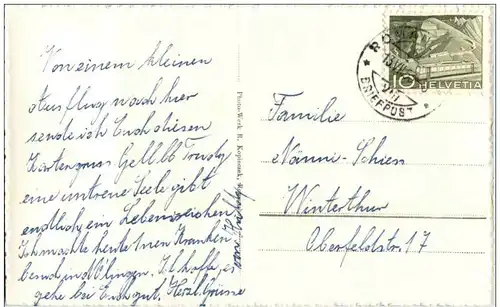 Von einem kleinen
Ausflug nach hier
sende ich Euch diesen
Kartengruss. Gell
eine untreue Seele gibt
endlich ein Lebenszeichen!
Ich machte heute einen Kranken-
besuch in Ich hoffe, es
gehe bei Euch gut. Herzl. Grüsse
Photo-Werk
10
HELVETIA
BRIEFPOST
Familie
Nänni-Schien
Winterthur
Oberfeldstr. 17